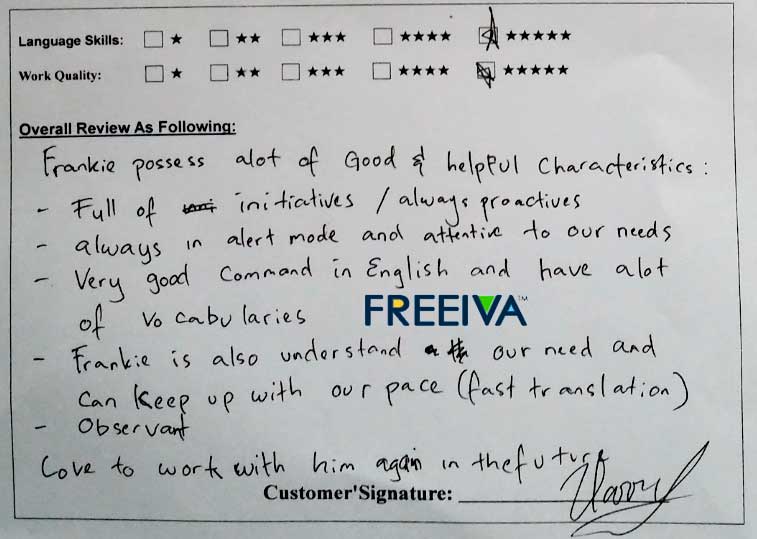 Language Skills: ☐ ★ ☐ ★★ ☐ ★★★ ☐ ★★★★ ☑ ★★★★★
Work Quality: ☐ ★ ☐ ★★ ☐ ★★★ ☐ ★★★★ ☑ ★★★★★
Overall Review As Following:
Frankie possess alot of Good & helpful Characteristics :
- Full of initiatives / always proactives
- always in alert mode and attentive to our needs
- Very good Command in English and have alot
of Vocabularies FREEIVA™
- Frankie is also understand our need and
Can Keep up with our pace (fast translation)
- Observant
Love to work with him again in the future
Customer'Signature: